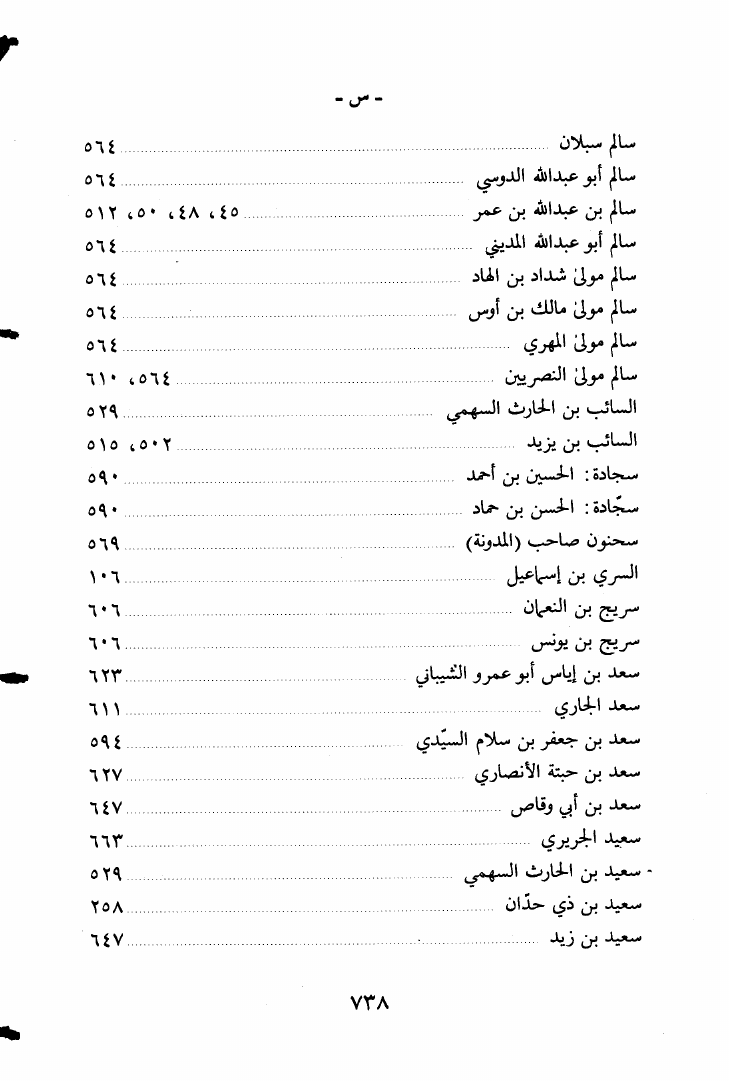 - س -
سالم سبلان ٥٦٤
سالم أبو عبدالله الدوسي ٥٦٤
سالم بن عبدالله بن عمر ٤٥، ٤٨، ٥٠، ٥١٢
سالم أبو عبدالله المديني ٥٦٤
سالم مولىٰ شداد بن الهاد ٥٦٤
سالم مولىٰ مالك بن أوس ٥٦٤
سالم مولىٰ المهري ٥٦٤
سالم مولىٰ النصريين ٥٦٤، ٦١٠
السائب بن الحارث السهمي ٥٢٩
السائب بن يزيد ٥٠٢، ٥١٥
سجادة: الحسين بن أحمد ٥٩٠
سجّادة: الحسن بن حماد ٥٩٠
سحنون صاحب (المدونة) ٥٦٩
السري بن إسماعيل ١٠٦
سريج بن النعمان ٦٠٦
سريج بن يونس ٦٠٦
سعد بن إياس أبو عمرو الشيباني ٦٢٣
سعد الجاري ٦١١
سعد بن جعفر بن سلام السيّدي ٥٩٤
سعد بن حبتة الأنصاري ٦٢٧
سعد بن أبي وقاص ٦٤٧
سعيد الجريري ٦٦٣
سعيد بن الحارث السهمي ٥٢٩
سعيد بن ذي حدّان ٢٥٨
سعيد بن زيد ٦٤٧
٧٣٨